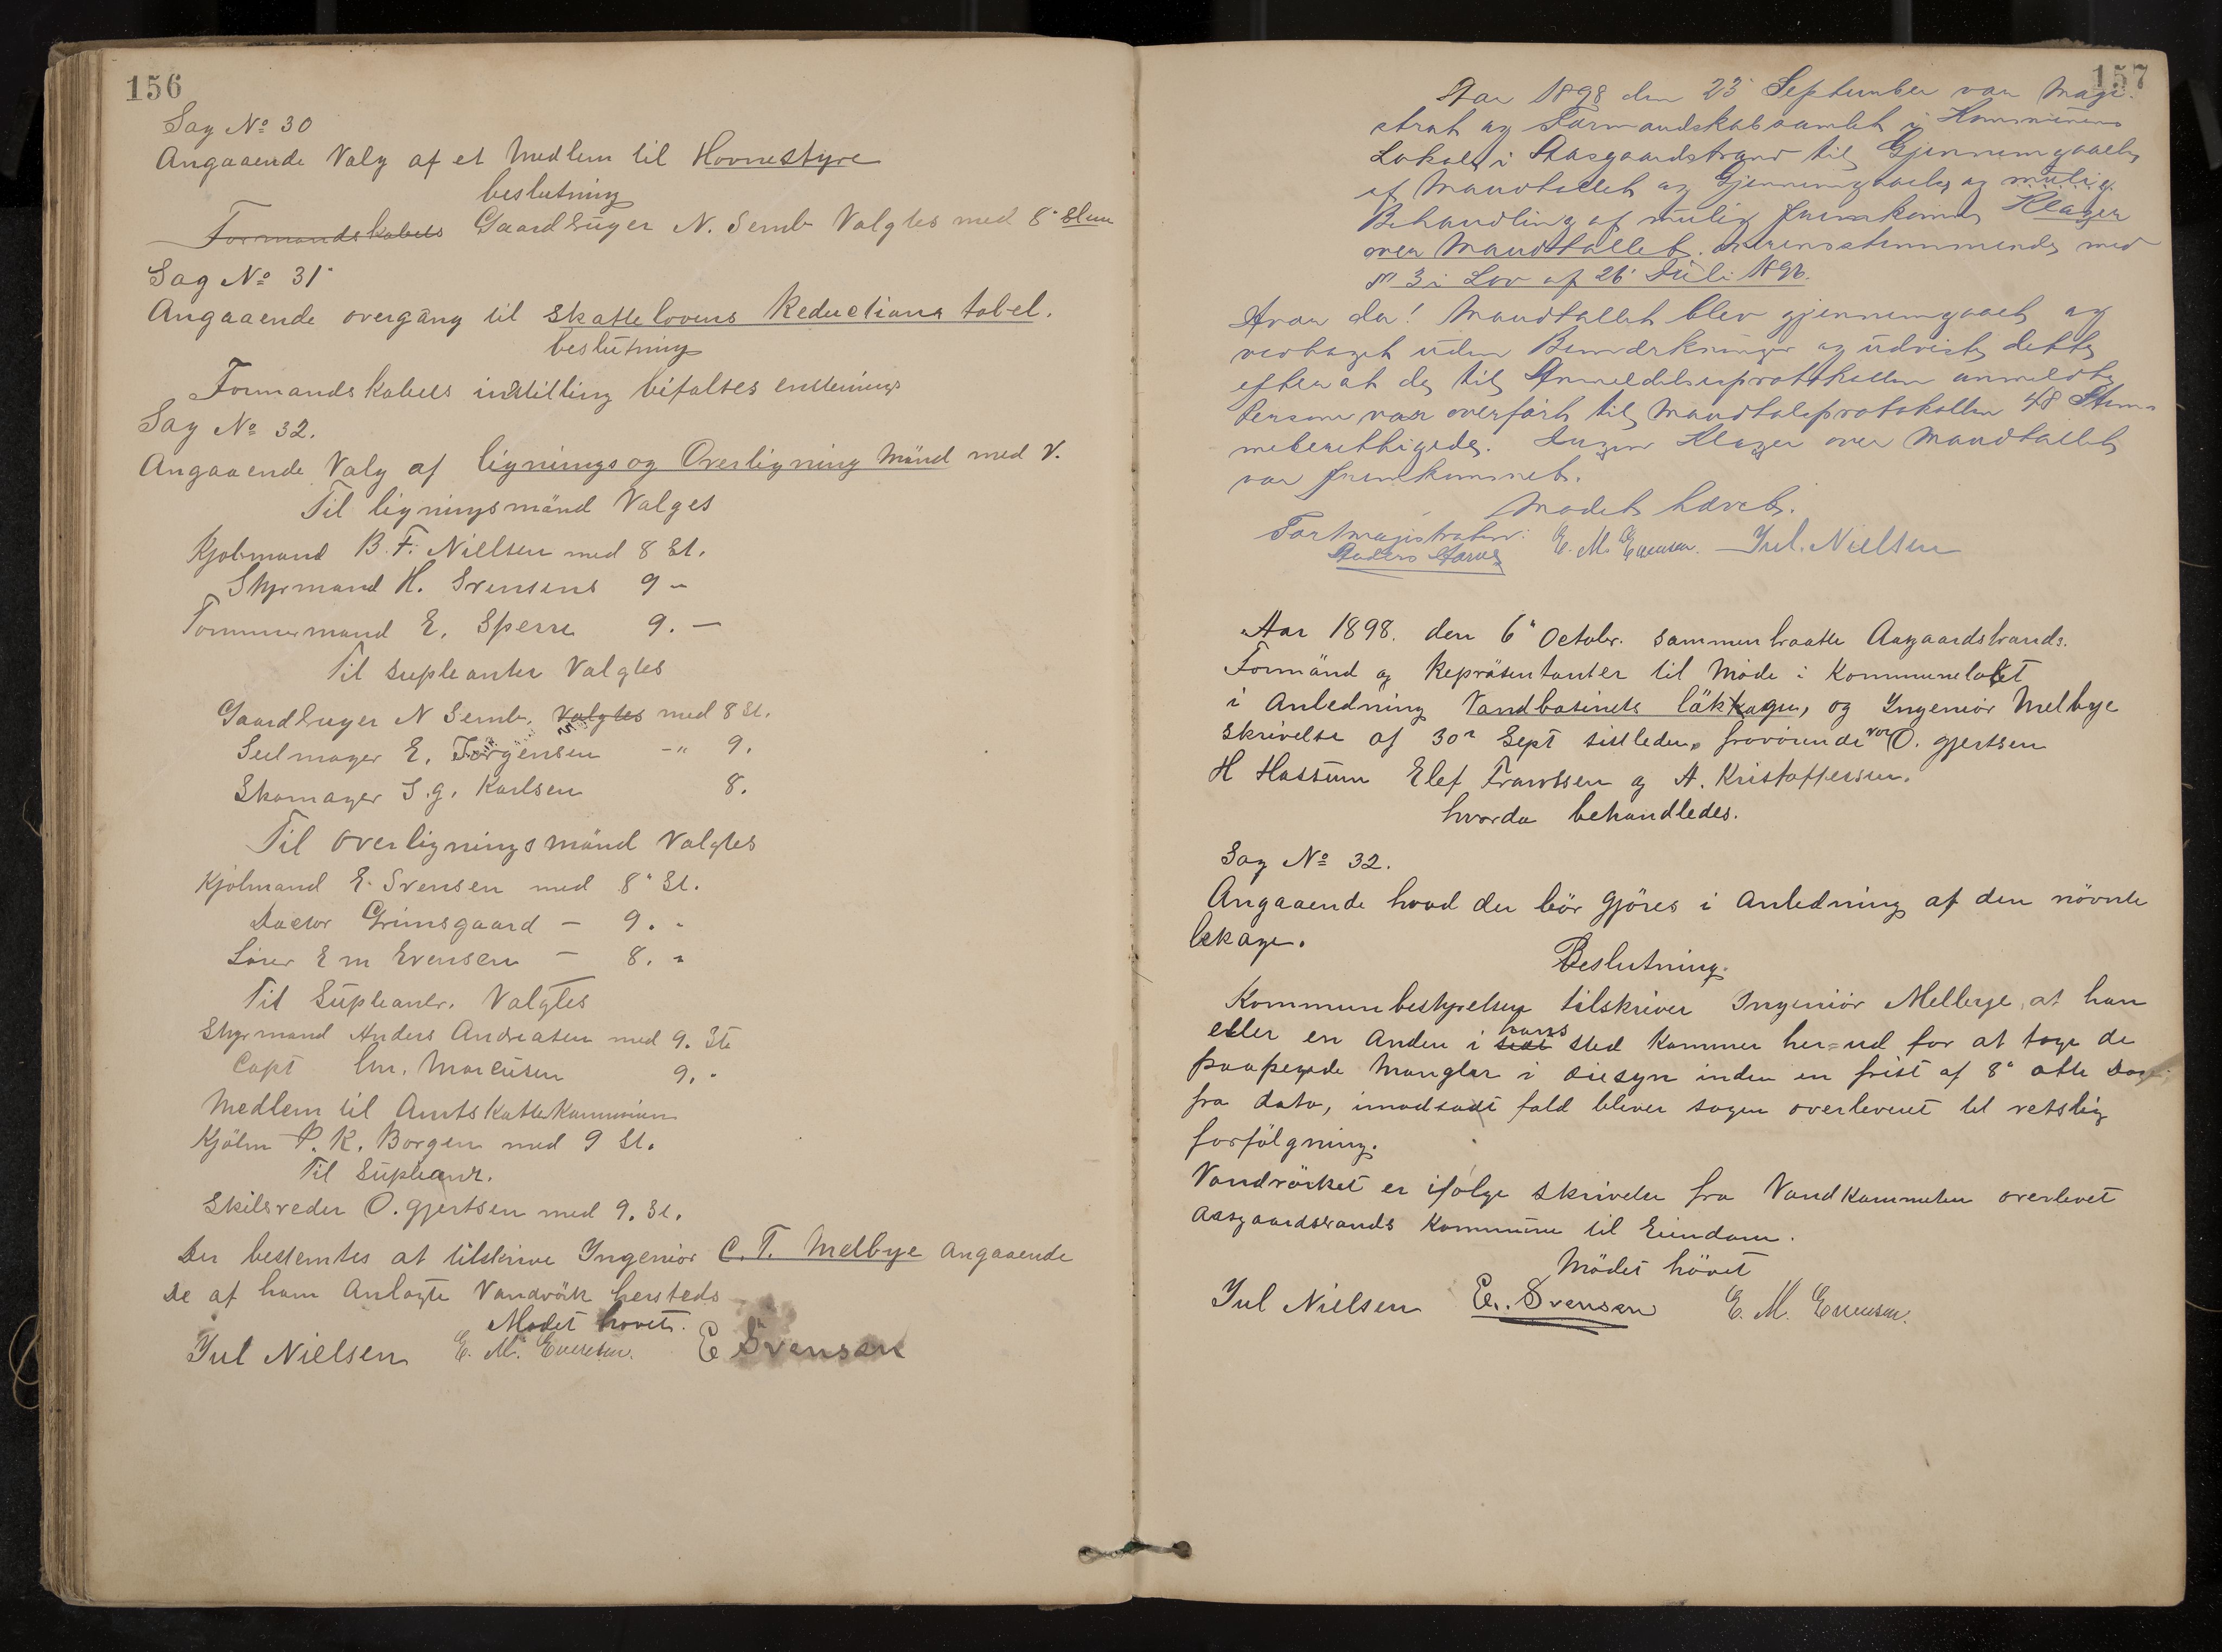 156
Sag No 30
Angaaende Valg af et Medlem til Hovnestyre
beslutning
Formandskabets Gaardbruger N. Semb Valgtes med 8 Stem
Sag No 31
Angaaende overgang til Skattelovens Reductions tabel.
beslutning
Formandskabets indstilling bifaltes enstemig
Sag No 32.
Angaaende Valg af lignings og Overligning Mänd med V.
Til ligningsmänd Valges
Kjøbmand B. F. Nielsen med 8 St.
Styrmand H. Svensens 9 -
Tommermand E. Sperre 9. -
Til supleanter Valgtes
Gaardbruger N Semb. Valgtes med 8 St.
Seilmager E. Jørgensen -"- 9.
Skomager S. g. Karlsen 8.
Til overligningsmänd Valgtes
Kjøbmand E. Svensen med 8" St.
Doctor Grimsgaard - 9. -
Lärer E m Evensen - 8. "
Til Supleantr. Valgtes
Styrmand Anders Andreasen med 9. St
Capt Chr. Marcusen 9. -
Medlem til Amtskattekommision
Kjöbm P. K. Borgen med 9 St.
Til Supleant.
Skibsreder O. gjertsen med 9. St.
Der bestemtes at tilskrive Ingeniør C. T. Melbye Angaaende
De af ham Anlagte Vandvärk hersteds
Mødet hövet.
Jul Nielsen E. M. Evensen. E Svensen
157
Aar 1898 den 23 September var Magi-
strat og Formandskab samlet i Kommunens
Lokale i Aasgaardstrand til Gjennemgaaelse
af Mandtallet og Gjennemgaaelse og mulig
Behandling af mulig fremkomne Klager
over Mandtallet. overensstemmende med
§ 3 i Lov af 26 Juli 1896.
Hvor da! Mandtallet blev gjennemgaaet og
vedtaget uden Bemærkninger og udviste dette
efterat de til Anmeldelsesprotokollen anmeldte
Personer var overført til Mandtalsprotokollen 48 Stem-
meberettigede. Ingen Klager over Mandtallet
var fremkommet.
Mødet hævet.
For Magistraten: E. M. Evensen. Jul. Nielsen
Anders
Aar 1898. den 6" October. sammentraatte Aasgaardstrands.
Formänd og Repräsentanter til Møde i Kommunelokalet
i Anledning Vandbasinets läkkage, og Ingeniør Melbye
skrivelse af 30n Sept sistleden, fravörende var O. gjertsen
H Hassum Elef Frantsen og A. Kristoffersen.
hvorda behandledes.
Sag No 32.
Angaaende hvad der bör gjöres i Anledning af den növnte
lekage.
Beslutning.
Kommunbestyrelsen tilskriver Ingeniör Melberge, at han
eller en Anden i sedt hans sted kommer her=ud for at tage de
paapegede Mangler i öiesyn inden en frist af 8" otte Dage
fra dato, imodsadt fald bliver sagen overleveret til retslig
forfölgning.
Vandvörket er ifølge skrivelse fra Vandkommiten overlevet
Aasgaardstrands Kommune til Eiendom.
Mödet hövet
Jul Nielsen E. Svensen E. M. Evensen.